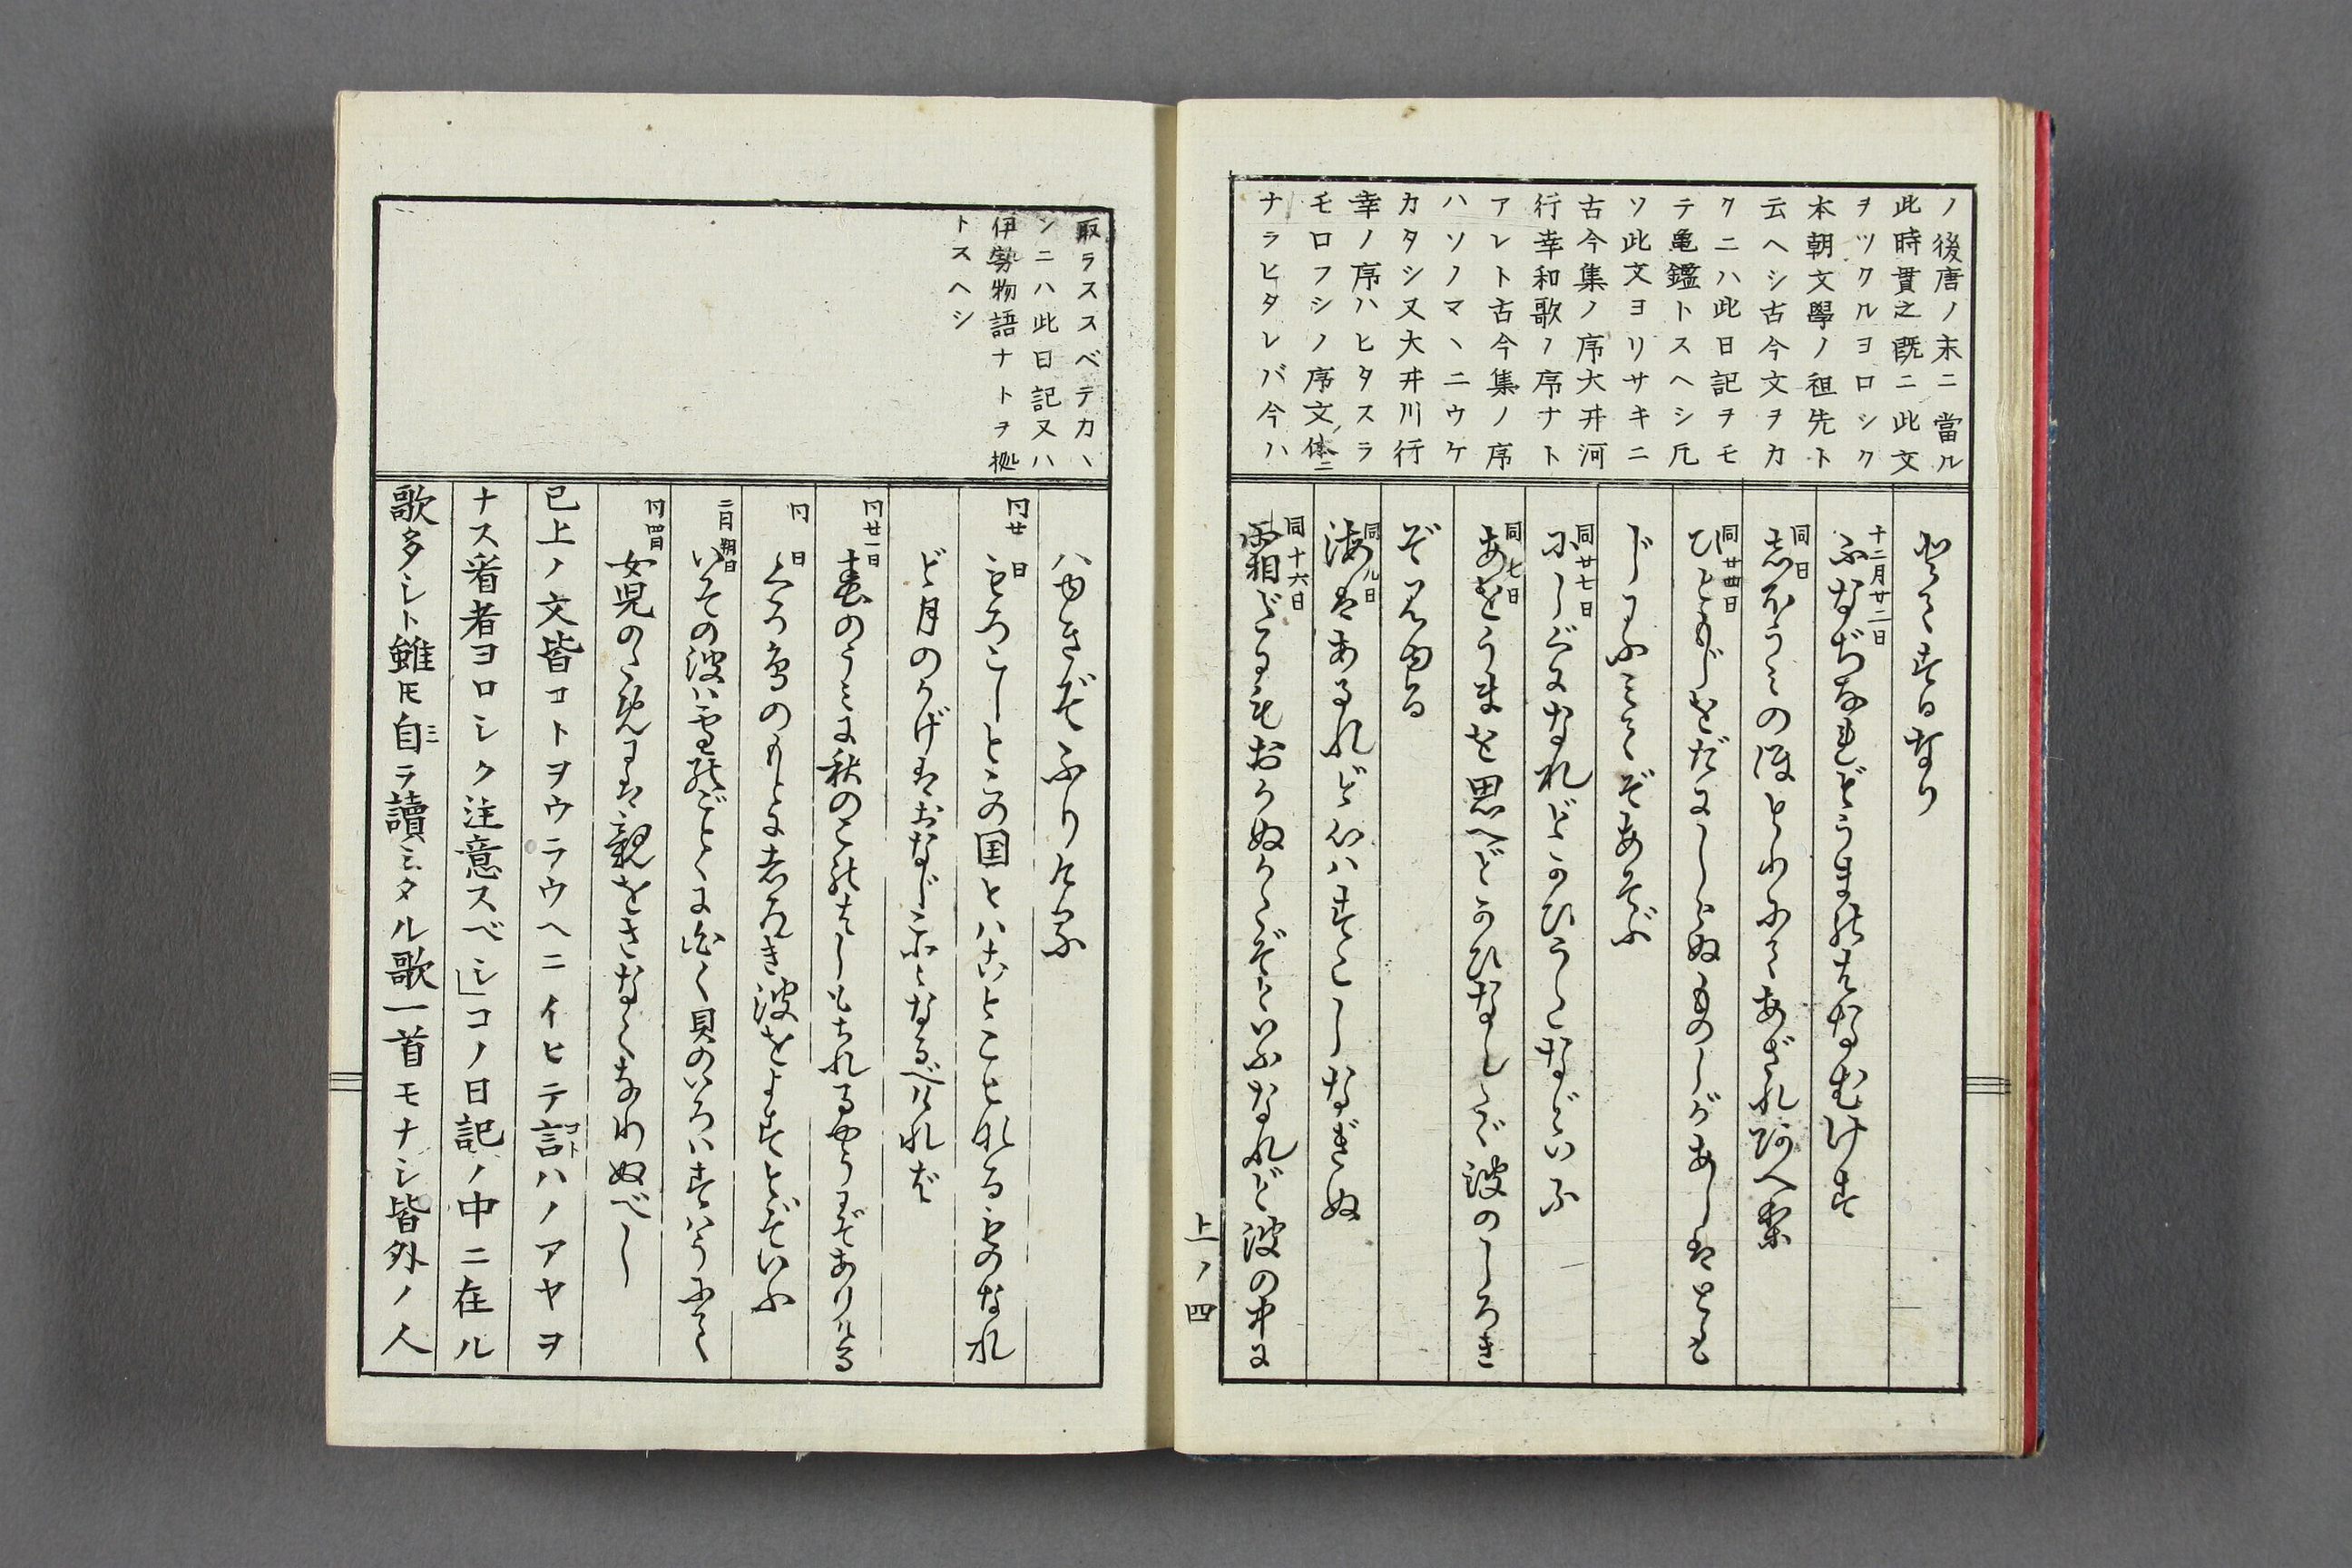 ノ後唐ノ末ニ當ル
此時貫之既ニ此文
ヲツクルヨロシク
本朝文學ノ祖先ト
云ヘシ古今文ヲカ
クニハ此日記ヲモ
テ亀鑑トスヘシ凡
ソ此文ヨリサキニ
古今集ノ序大井河
行幸和歌ノ序ナト
アレト古今集ノ序
ハソノマヽニウケ
カタシ又大井川行
幸ノ序ハヒタスラ
モロフシノ序文体ニ
ナラヒタレバ今ハ
するなり
十二月廿二日
ふなぢなれどうまのはなむけす
同日
しほうみのほとりにてあざれあへり
同廿四日
ひともじをだにしらぬものしがあしはとも
じにふみてぞあそぶ
同廿七日
にしぐになれどかひうたなどいふ
同七日
あをうまを思へどかひなしたゞ波のしろき
ぞみゆる
同九日
海はあるれど心はすこしなぎぬ
同十六日
霜だにもおかぬかたぞといふなれど波の中に
上ノ四
取ラススベテカヽ
ンニハ此日記又ハ
伊勢物語ナトヲ拠
トスヘシ
ハゆきぞふりける
同廿日
もろこしとこの国とハことことなるものなれ
ど月のかげはおなじことなるべければ
同廿一日
春のうみに秋のこのはしもちれるやうにぞありける
同日
くろ鳥のもとにしろき波をよすとぞいふ
二月朔日
いその波ハ雪のごとくに白く貝のいろハすはうにて
同四日
女児のためには親をさなくなりぬべし
已上ノ文皆コトヲウラウヘニイヒテ言コトハノアヤヲ
ナス看者ヨロシク注意スベシ」コノ日記ノ中ニ在ル
歌多シト雖モ自ミラ讀ミタル歌一首モナシ皆外ノ人